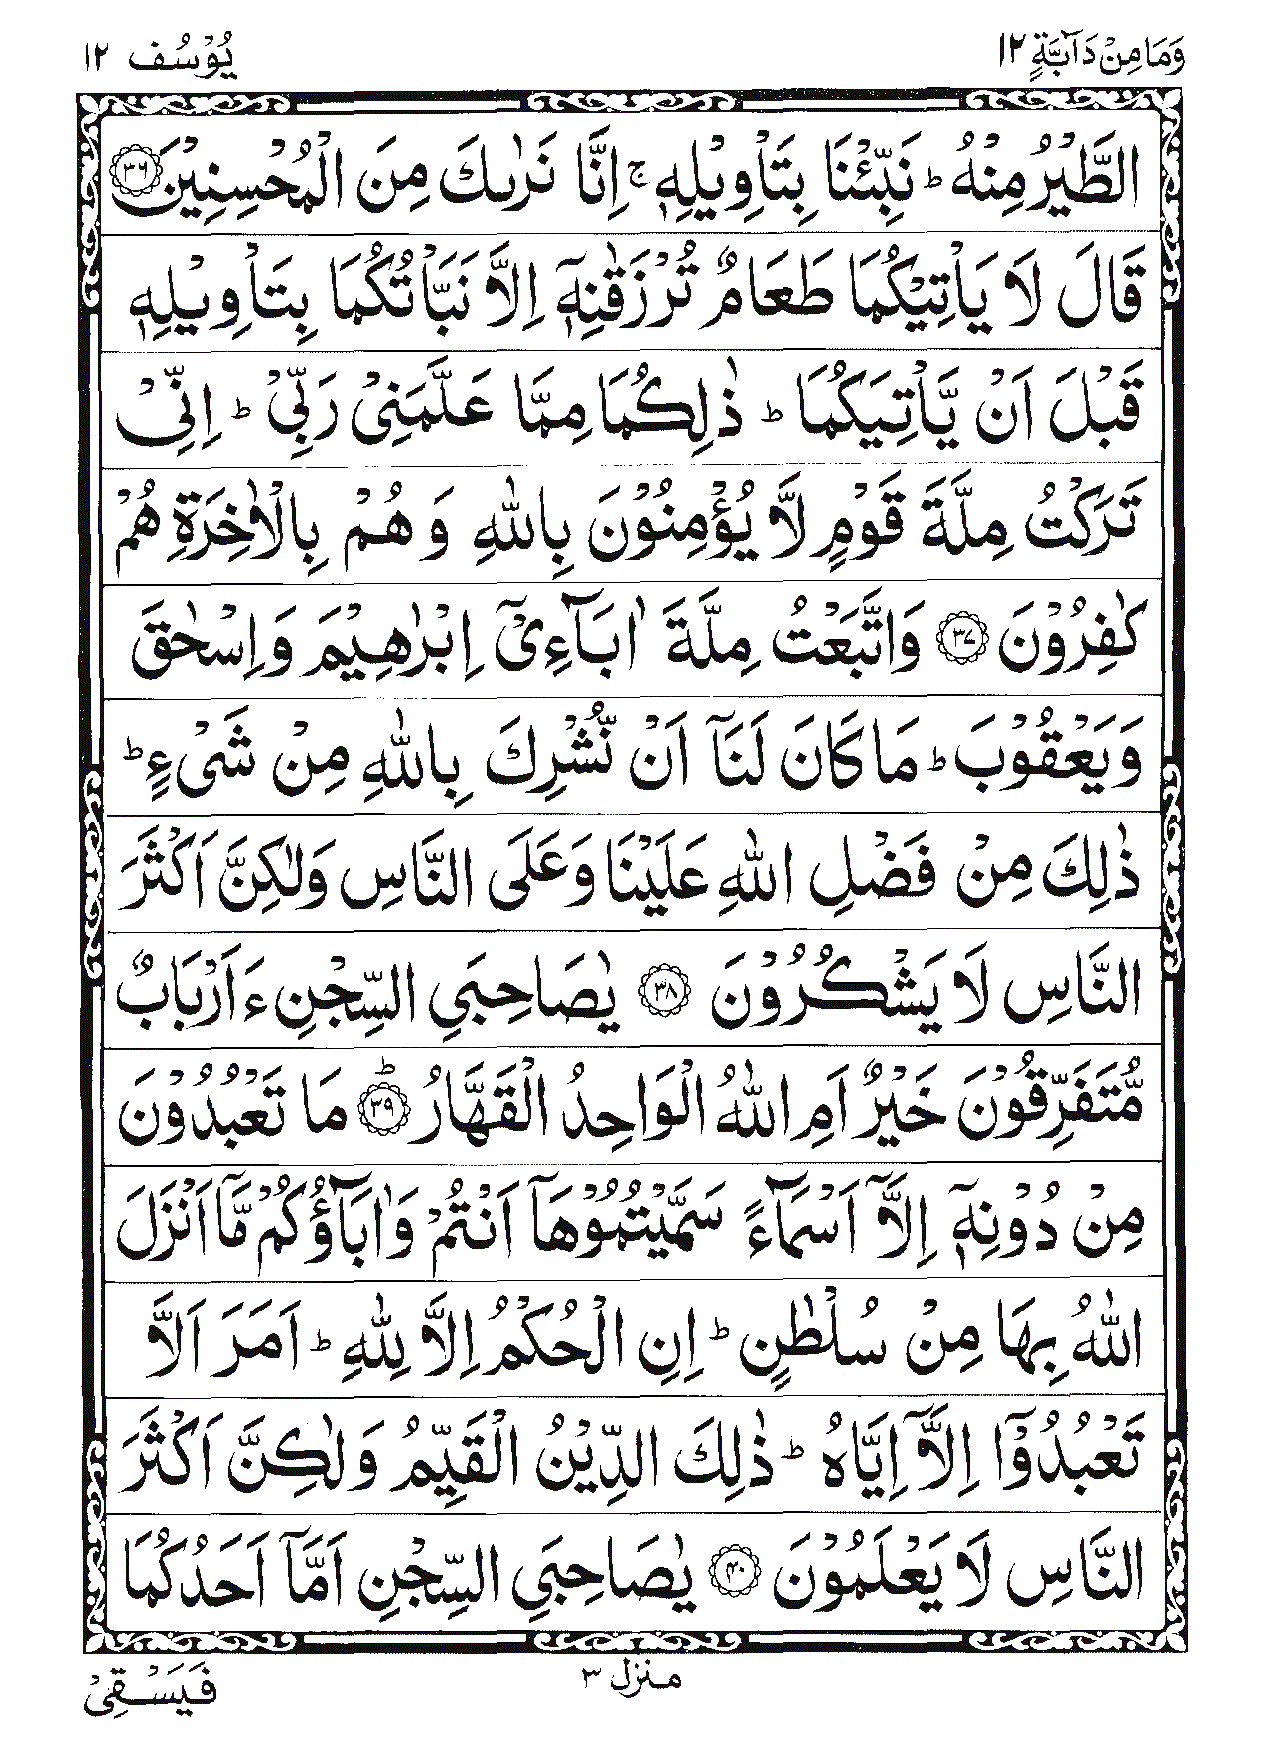 وَمَا مِنْ دَآبَّةٍ ١٢ يُوْسُف ١٢
الطَّيْرُ مِنْهُ ؕ نَبِّئْنَا بِتَاْوِيْلِهٖ ۚ اِنَّا نَرٰىكَ مِنَ الْمُحْسِنِيْنَ ﴿۳۶﴾
قَالَ لَا يَاْتِيْكُمَا طَعَامٌ تُرْزَقٰنِهٖۤ اِلَّا نَبَّاْتُكُمَا بِتَاْوِيْلِهٖ
قَبْلَ اَنْ يَّاْتِيَكُمَا ؕ ذٰلِكُمَا مِمَّا عَلَّمَنِيْ رَبِّيْ ؕ اِنِّيْ
تَرَكْتُ مِلَّةَ قَوْمٍ لَّا يُؤْمِنُوْنَ بِاللّٰهِ وَ هُمْ بِالْاٰخِرَةِ هُمْ
كٰفِرُوْنَ ﴿۳۷﴾ وَاتَّبَعْتُ مِلَّةَ اٰبَآءِيْۤ اِبْرٰهِيْمَ وَاِسْحٰقَ
وَيَعْقُوْبَ ؕ مَا كَانَ لَنَاۤ اَنْ نُّشْرِكَ بِاللّٰهِ مِنْ شَيْءٍ ؕ
ذٰلِكَ مِنْ فَضْلِ اللّٰهِ عَلَيْنَا وَعَلَى النَّاسِ وَلٰكِنَّ اَكْثَرَ
النَّاسِ لَا يَشْكُرُوْنَ ﴿۳۸﴾ يٰصَاحِبَيِ السِّجْنِ ءَاَرْبَابٌ
مُّتَفَرِّقُوْنَ خَيْرٌ اَمِ اللّٰهُ الْوَاحِدُ الْقَهَّارُ ﴿۳۹﴾ؕ مَا تَعْبُدُوْنَ
مِنْ دُوْنِهٖۤ اِلَّاۤ اَسْمَآءً سَمَّيْتُمُوْهَاۤ اَنْتُمْ وَاٰبَآؤُكُمْ مَّاۤ اَنْزَلَ
اللّٰهُ بِهَا مِنْ سُلْطٰنٍ ؕ اِنِ الْحُكْمُ اِلَّا لِلّٰهِ ؕ اَمَرَ اَلَّا
تَعْبُدُوْۤا اِلَّاۤ اِيَّاهُ ؕ ذٰلِكَ الدِّيْنُ الْقَيِّمُ وَلٰكِنَّ اَكْثَرَ
النَّاسِ لَا يَعْلَمُوْنَ ﴿۴۰﴾ يٰصَاحِبَيِ السِّجْنِ اَمَّاۤ اَحَدُكُمَا
منزل ٣
فَيَسْقِيْ